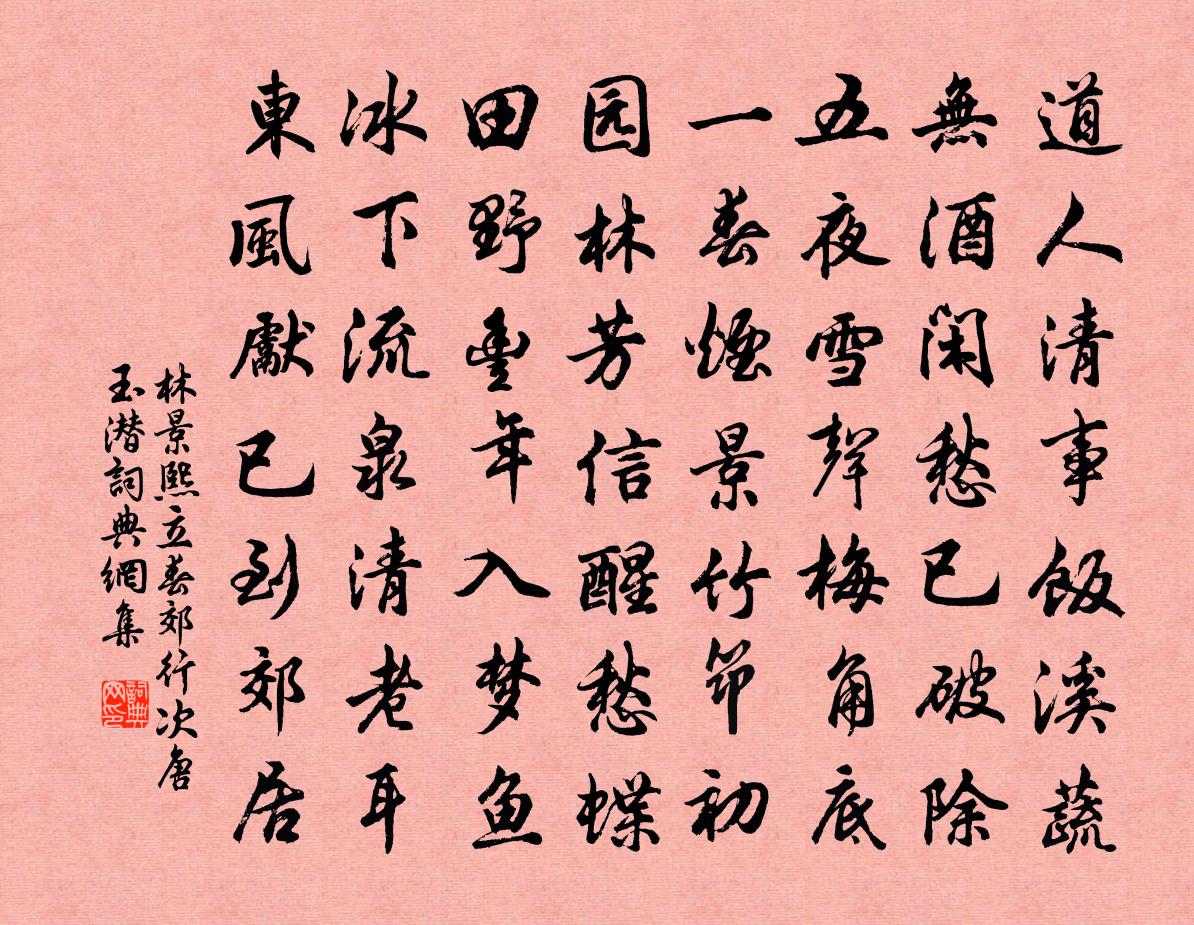 道人清事飯溪蔬
無酒閑愁已破除
五夜雪聲梅角底
一春煙景竹筇初
园林芳信醒愁蝶
田野豊年入梦鱼
冰下流泉清老耳
東風獻已到郊居
林景熙立春郊行次唐
玉潜詞典網集
詞典网印